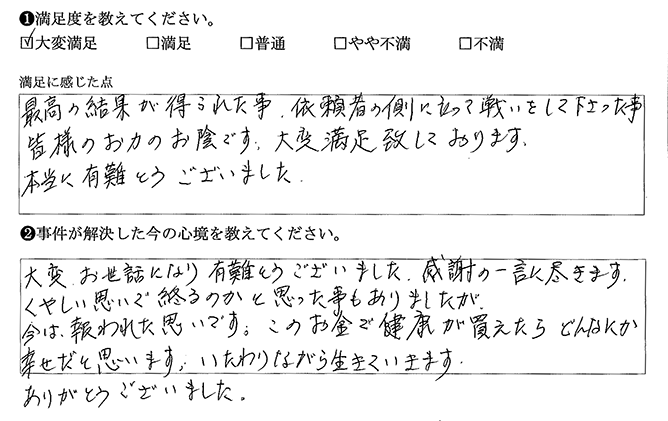 ❶満足度を教えてください。
☑大変満足 □満足 □普通 □やや不満 □不満
満足に感じた点
最高の結果が得られた事、依頼者の側に立って戦いをして下さった事
皆様のお力のお陰です。大変満足致しております。
本当に有難とうございました。
❷事件が解決した今の心境を教えてください。
大変、お世話になり有難とうございました。感謝の一言に尽きます。
くやしい思いで終るのかと思った事もありましたが、
今は、報われた思いです。このお金で健康が買えたらどんなにか
幸せだと思います。いたわりながら生きていきます。
ありがとうございました。